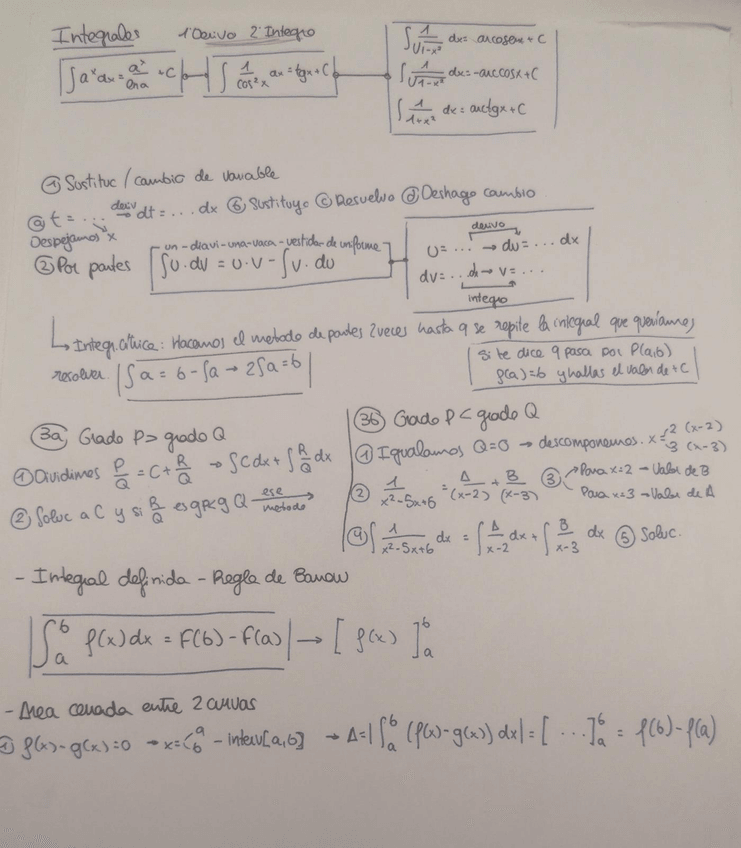 Integrales 1ºDerivo 2ºIntegro
∫a^x dx = a^x/ln a + C
∫ 1/cos²x dx = tgx + C
∫ 1/√1-x² dx = arcosenx + C
∫ 1/√1-x² dx = -arccosx + C
∫ 1/1+x² dx = arctgx + C
① Sustituc / cambio de variable
ⓐ t = ... deriv→ dt = ... dx ⓑ Sustituyo ⓒ Resuelvo ⓓ Deshago cambio
Despejamos x
② Por partes
un-diavi-una-vaca-vestida de uniforme
∫U·dV = U·V - ∫V·dU
derivo
U = ... → dU = ... dx
dV = ... dx → V = ...
integro
↳ Integr. cíclica: Hacemos el metodo de partes 2 veces hasta q se repite la integral que queríamos
resolver. ∫a = b - ∫a → 2∫a = b
si te dice q pasa por P(a,b)
f(a)=b y hallas el valor de +C
③a Grado P > grado Q
① Dividimos P/Q = C + R/Q → ∫C dx + ∫ R/Q dx
② Soluc a C y si R/Q es gR<gQ ese metodo→
③b Grado P < grado Q
① Igualamos Q=0 → descomponemos. x = 2 (x-2) 3 (x-3)
② 1/x²-5x+6 = A/(x-2) + B/(x-3) ③ Para x=2 → Valor de B
Para x=3 → Valor de A
④ ∫ 1/x²-5x+6 dx = ∫ A/x-2 dx + ∫ B/x-3 dx ⑤ Soluc.
- Integral definida - Regla de Barrow
∫_a^b f(x) dx = F(b) - F(a) → [ f(x) ]_a^b
- Área cerrada entre 2 curvas
① f(x)-g(x)=0 → x = a b - interv [a,b] → A = |∫_a^b (f(x)-g(x)) dx| = [ ... ]_a^b = f(b) - f(a)